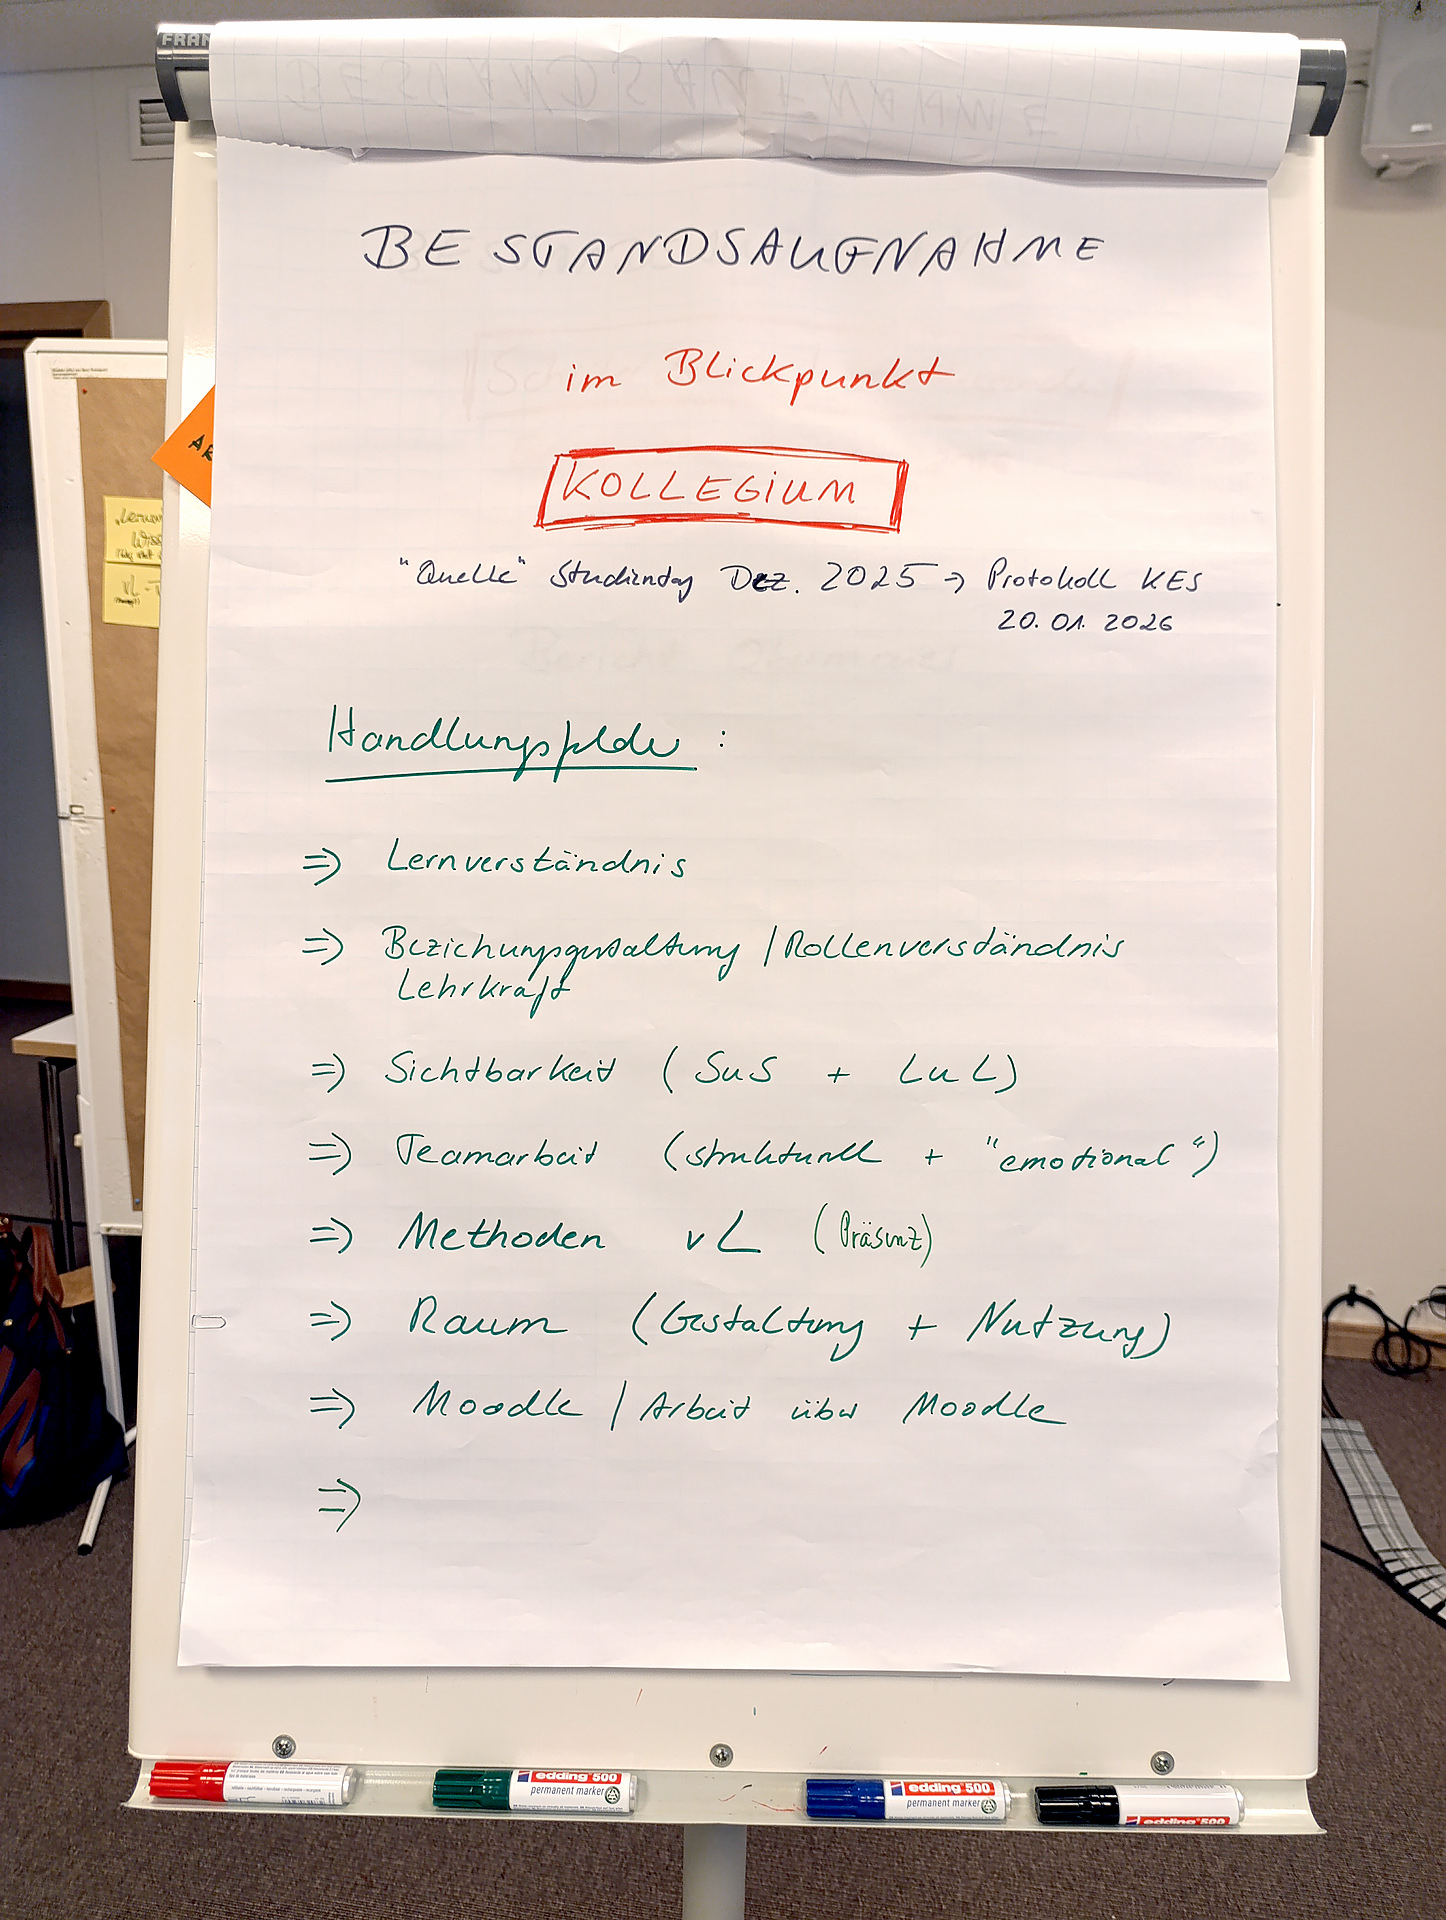 FRAN
BESTANDSAUFNAHME
BESTANDSAUFNAHME
im Blickpunkt
KOLLEGIUM
"Quelle" Studientag Dez. 2025 → Protokoll KES
20.01.2026
Handlungsfelder :
⇒ Lernverständnis
⇒ Beziehungsgestaltung / Rollenverständnis
Lehrkraft
⇒ Sichtbarkeit (SuS + LuL)
⇒ Teamarbeit (strukturell + "emotional")
⇒ Methoden vL (Präsenz)
⇒ Raum (Gestaltung + Nutzung)
⇒ Moodle / Arbeit über Moodle
⇒
AR
vL -
edding 500
permanent marker
edding 500
permanent marker
edding 500